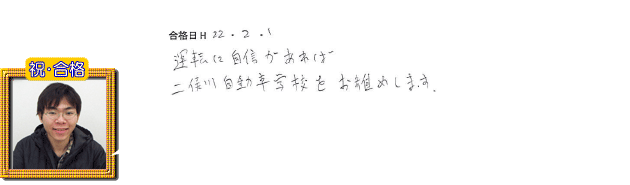 合格日H 22.2.1
祝・合格
運転に自信があれば
二俣川自動車学校をお薦めします。